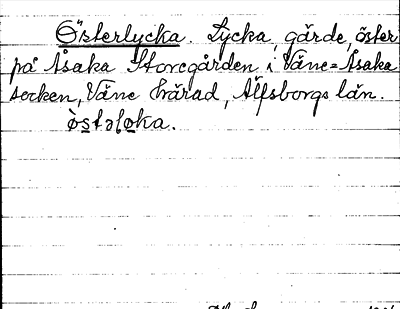 Österlycka. Lycka, gärde, öster
på Åsaka Storegården i Väne=Åsaka
socken, Väne härad, Älfsborgs län.